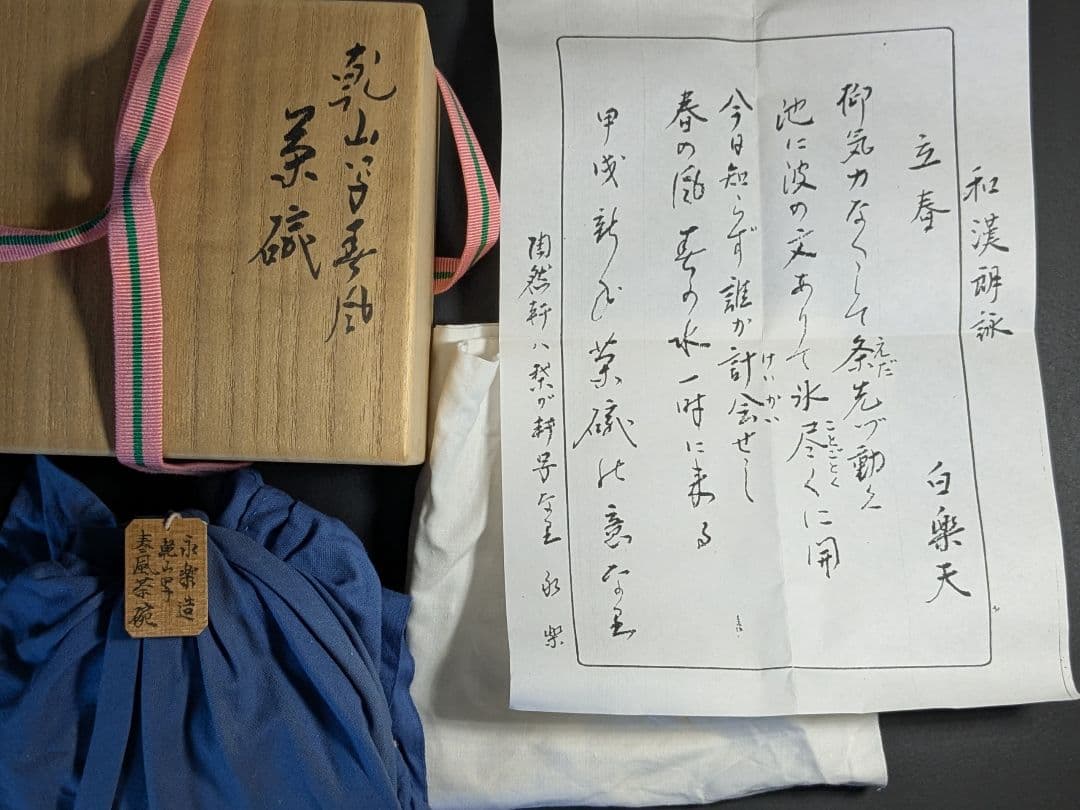 和漢朗詠
立春 白楽天
柳気力なくして条先づ動く
えだ
池に波の文ありて氷尽くに開
ことごとく
今日知らず誰か計会せし
けいかい
春の風春の水一時に来る
甲戌新年茶碗の意なり
陶然軒ハ我が軒号なり 永楽
乾山写春風
茶碗
永楽造
乾山写
春風茶碗